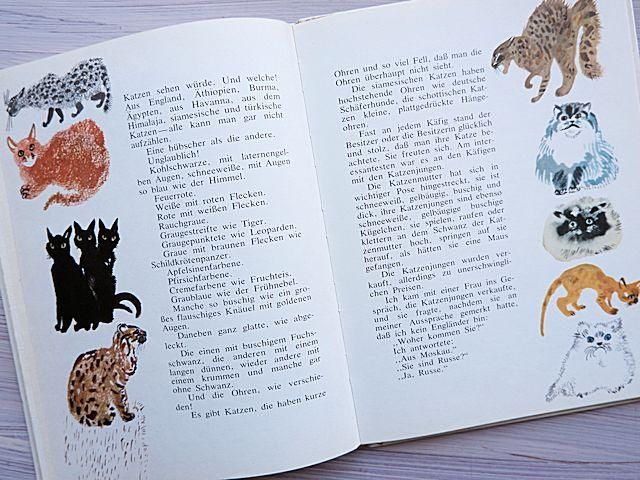 Katzen sehen würde. Und welche!
Aus England, Äthiopien, Burma,
Ägypten, aus Havanna, aus dem
Himalaja, siamesische und türkische
Katzen — alle kann man gar nicht
aufzählen.
Eine hübscher als die andere.
Unglaublich!
Kohlschwarze, mit laternengel-
ben Augen, schneeweiße, mit Augen
so blau wie der Himmel.
Feuerrote.
Weiße mit roten Flecken.
Rote mit weißen Flecken.
Rauchgraue.
Graugestreifte wie Tiger.
Graugepunktete wie Leoparden.
Graue mit braunen Flecken wie
Schildkrötenpanzer.
Apfelsinenfarbene.
Pfirsichfarbene.
Cremefarbene wie Fruchteis.
Graublaue wie der Frühnebel.
Manche so buschig wie ein gro-
ßes flauschiges Knäuel mit goldenen
Augen.
Daneben ganz glatte, wie abge-
leckt.
Die einen mit buschigem Fuchs-
schwanz, die anderen mit einem
langen dünnen, wieder andere mit
einem krummen und manche gar
ohne Schwanz.
Und die Ohren, wie verschie-
den!
Es gibt Katzen, die haben kurze
Ohren und so viel Fell, daß man die
Ohren überhaupt nicht sieht.
Die siamesischen Katzen haben
hochstehende Ohren wie deutsche
Schäferhunde, die schottischen Kat-
zen kleine, plattgedrückte Hänge-
ohren.
Fast an jedem Käfig stand der
Besitzer oder die Besitzerin glücklich
und stolz, daß man ihre Katze be-
achtete. Sie freuten sich. Am inter-
essantesten war es an den Käfigen
mit den Katzenjungen.
Die Katzenmutter hat sich in
wichtiger Pose hingestreckt, sie ist
schneeweiß, gelbäugig, buschig und
dick, ihre Katzenjungen sind ebenso
schneeweiße, gelbäugige buschige
Kügelchen, sie spielen, raufen oder
klettern an den Schwanz der Kat-
zenmutter hoch, springen auf sie
herauf, als hätten sie eine Maus
gefangen.
Die Katzenjungen wurden ver-
kauft, allerdings zu unerschwing-
lichen Preisen.
Ich kam mit einer Frau ins Ge-
spräch, die Katzenjungen verkaufte,
und sie fragte, nachdem sie an
meiner Aussprache gemerkt hatte,
daß ich kein Engländer bin:
„Woher kommen Sie?“
Ich antwortete:
„Aus Moskau.“
„Sie sind Russe?“
„Ja, Russe.“